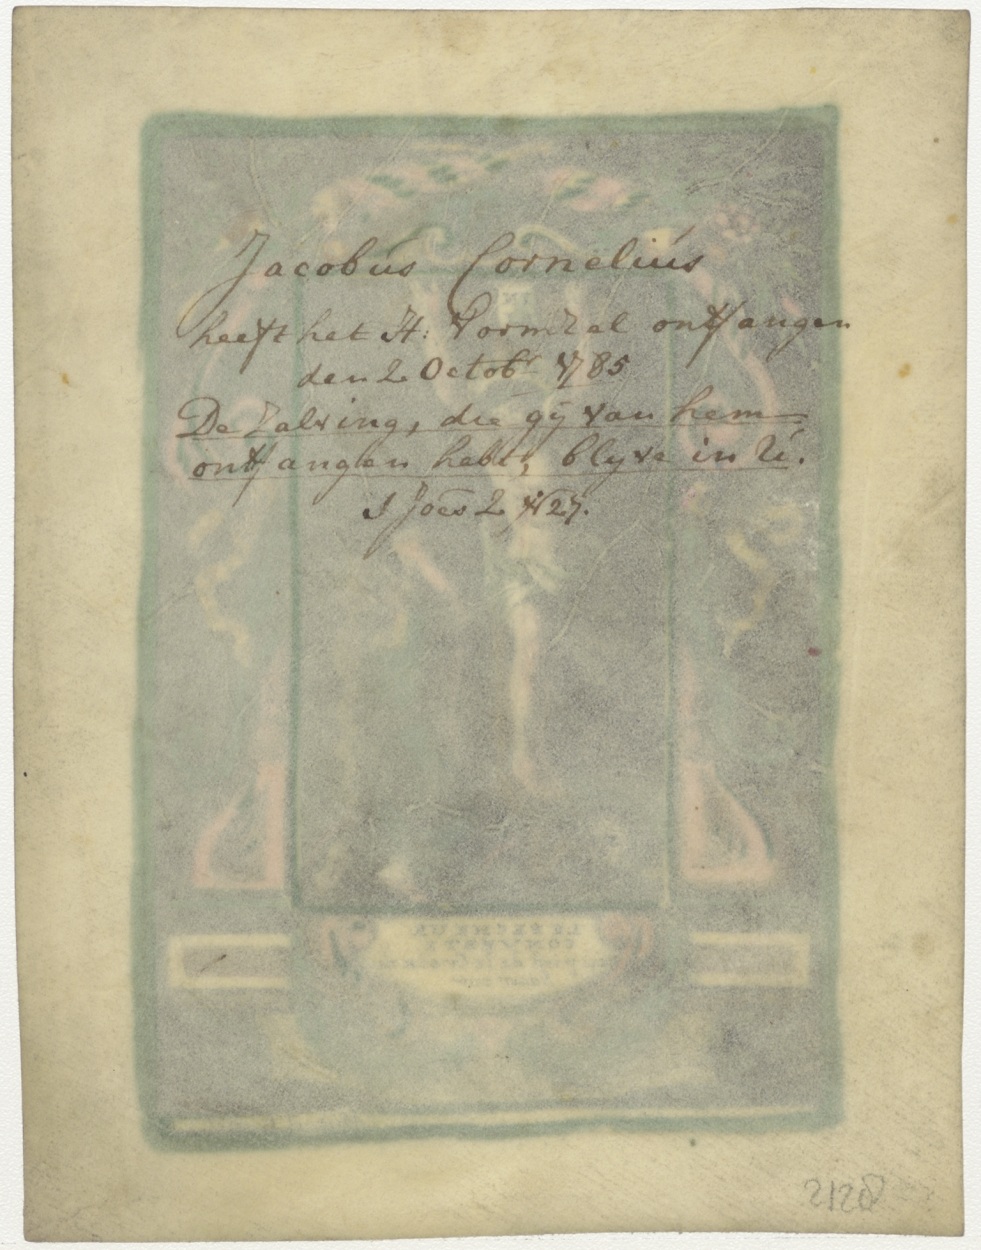 Jacobus Cornelius
heeft het H: Vormzel ontfangen
den 2 Octobr 1785
De Zalving, die gÿ van hem
ontfangen hebt, blyve in U.
I Joēs 2 ℣ 27.
LE PECHEUR
CONVERTY
2128